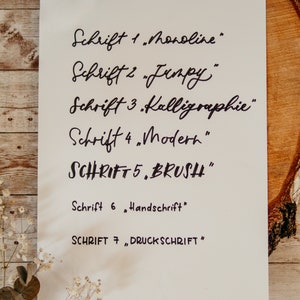 Schrift 1 „Monoline“
Schrift 2 „Jumpy“
Schrift 3 „Kalligraphie“
Schrift 4 „Modern“
SCHRIFT 5 „BRUSH“
Schrift 6 „Handschrift“
SCHRIFT 7 „DRUCKSCHRIFT“